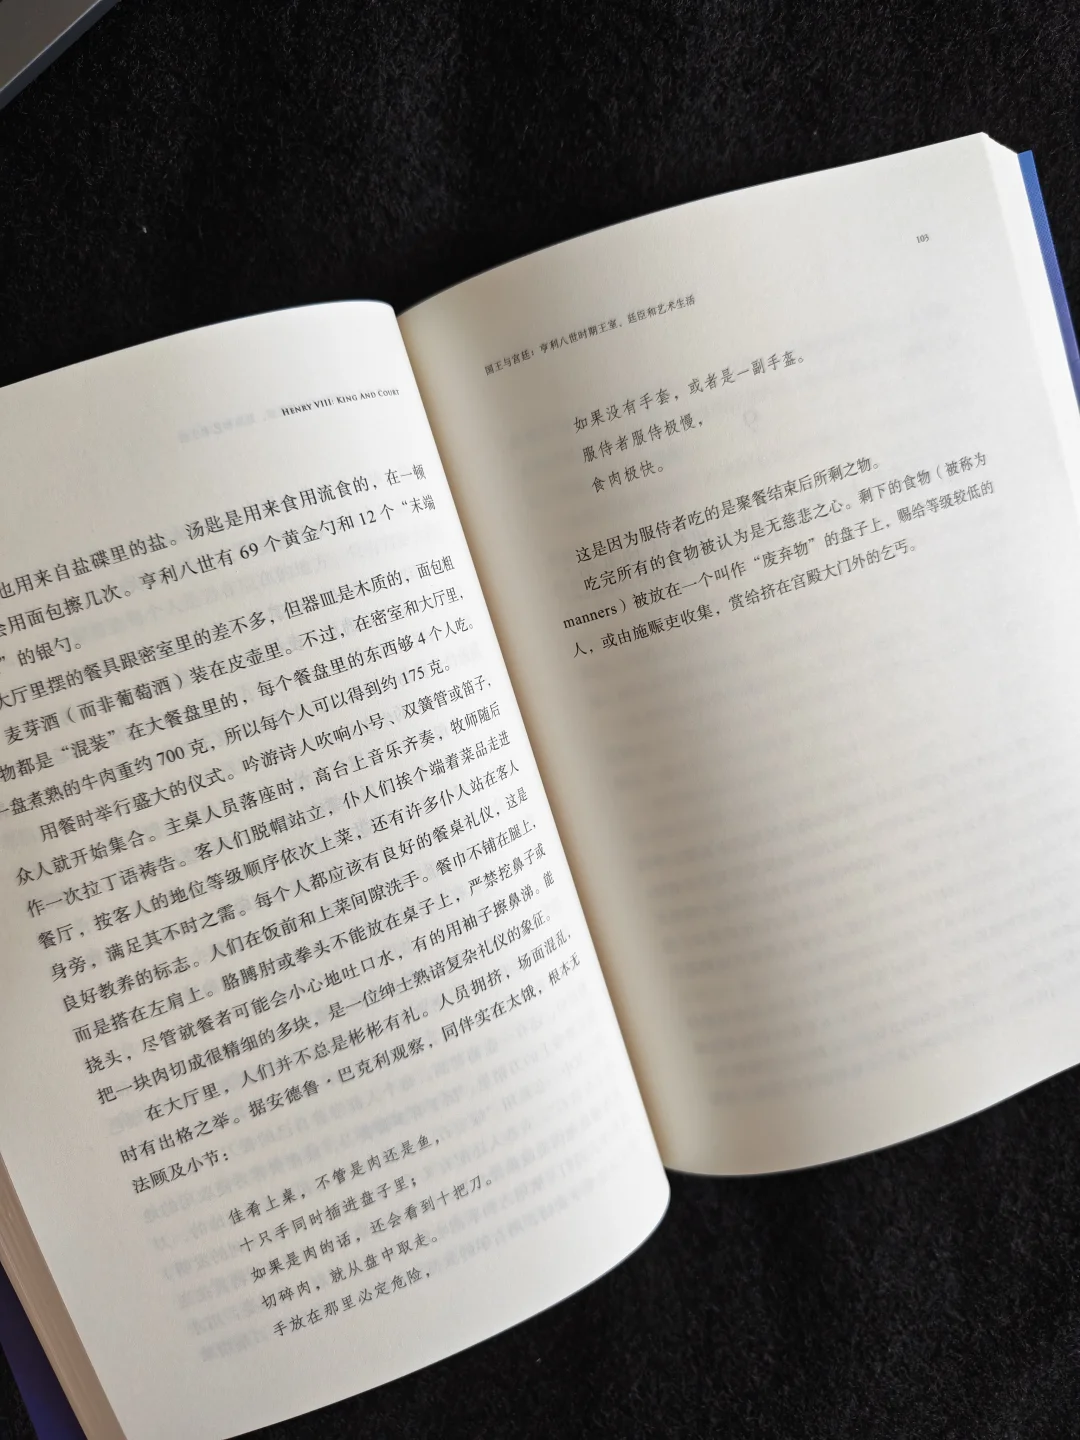 HENRY VIII: KING AND COURT
也用来自盐碟里的盐。汤匙是用来食用流食的，在一顿
会用面包擦几次。亨利八世有 69 个黄金勺和 12 个“末端
”的银勺。
大厅里摆的餐具跟密室里的差不多，但器皿是木质的，面包粗
麦芽酒（而非葡萄酒）装在皮壶里。不过，在密室和大厅里，
物都是“混装”在大餐盘里的，每个餐盘里的东西够 4 个人吃。
一盘煮熟的牛肉重约 700 克，所以每个人可以得到约 175 克。
用餐时举行盛大的仪式。吟游诗人吹响小号、双簧管或笛子，
众人就开始集合。主桌人员落座时，高台上音乐齐奏，牧师随后
作一次拉丁语祷告。客人们脱帽站立，仆人们挨个端着菜品走进
餐厅，按客人的地位等级顺序依次上菜，还有许多仆人站在客人
身旁，满足其不时之需。每个人都应该有良好的餐桌礼仪，这是
良好教养的标志。人们在饭前和上菜间隙洗手。餐巾不铺在腿上，
而是搭在左肩上。胳膊肘或拳头不能放在桌子上，严禁挖鼻子或
挠头，尽管就餐者可能会小心地吐口水，有的用袖子擦鼻涕。能
把一块肉切成很精细的多块，是一位绅士熟谙复杂礼仪的象征。
在大厅里，人们并不总是彬彬有礼。人员拥挤，场面混乱，
时有出格之举。据安德鲁·巴克利观察，同伴实在太饿，根本无
法顾及小节：
佳肴上桌，不管是肉还是鱼，
十只手同时插进盘子里；
如果是肉的话，还会看到十把刀。
切碎肉，就从盘中取走。
手放在那里必定危险，
105
国王与宫廷：亨利八世时期王室、廷臣和艺术生活
如果没有手套，或者是一副手盔。
服侍者服侍极慢，
食肉极快。
这是因为服侍者吃的是聚餐结束后所剩之物。
吃完所有的食物被认为是无慈悲之心。剩下的食物（被称为
manners）被放在一个叫作“废弃物”的盘子上，赐给等级较低的
人，或由施赈吏收集，赏给挤在宫殿大门外的乞丐。